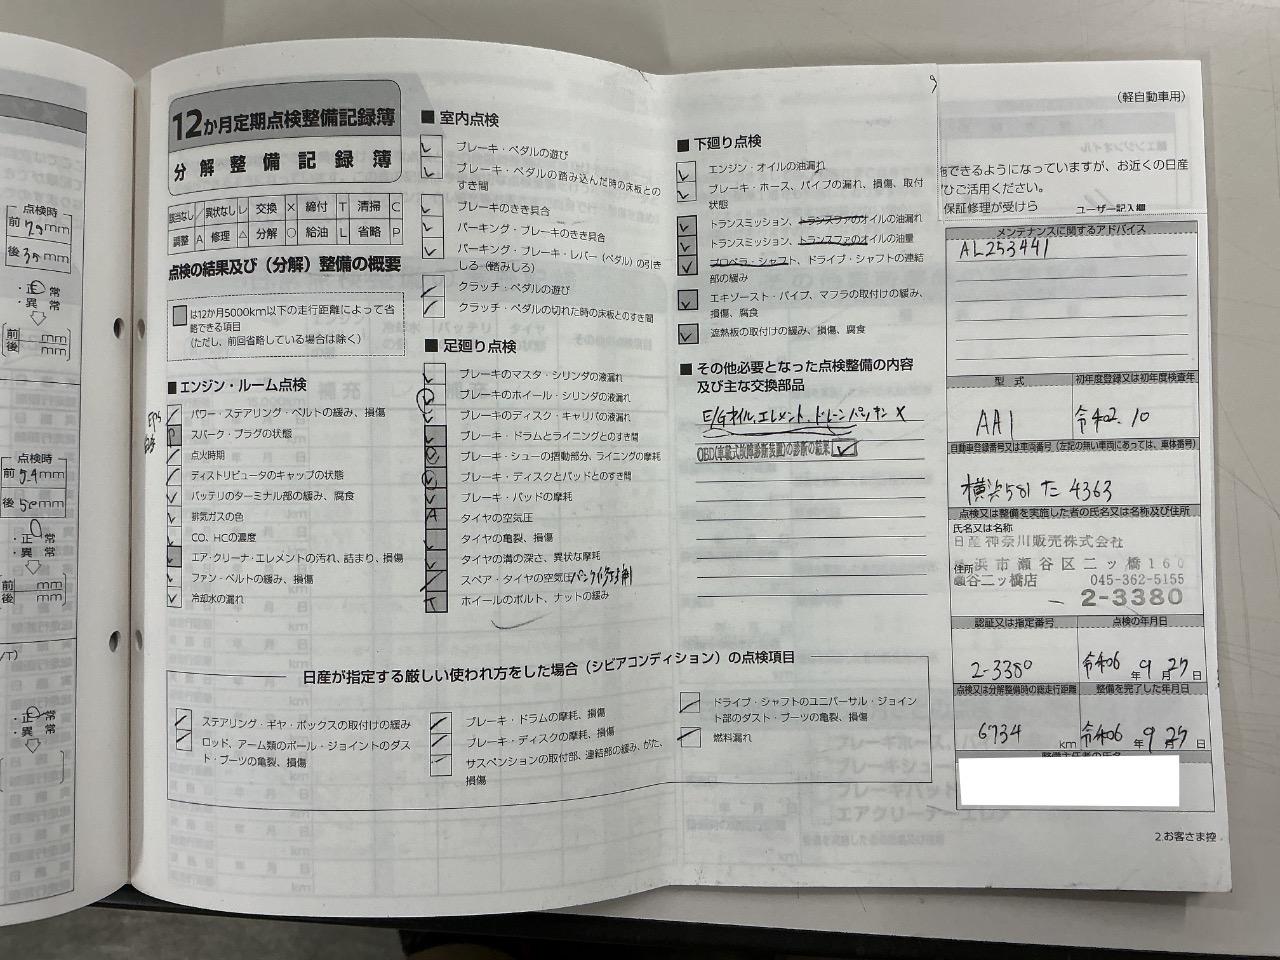 点検時
前 7.0 mm
後 3.5 mm
・正常
・異常
前 mm
後 mm
点検時
前 5.4 mm
後 5.0 mm
・正常
・異常
前 mm
後 mm
/T)
・正常
・異常
12か月定期点検整備記録簿
分解整備記録簿
該当なし / 異状なし レ 交換 × 締付 T 清掃 C
調整 A 修理 △ 分解 ○ 給油 L 省略 P
点検の結果及び(分解)整備の概要
は12か月5000km以下の走行距離によって省
略できる項目
(ただし、前回省略している場合は除く)
■エンジン・ルーム点検
パワー・ステアリング・ベルトの緩み、損傷
スパーク・プラグの状態
点火時期
ディストリビュータのキャップの状態
バッテリのターミナル部の緩み、腐食
排気ガスの色
CO、HCの濃度
エア・クリーナ・エレメントの汚れ、詰まり、損傷
ファン・ベルトの緩み、損傷
冷却水の漏れ
■室内点検
ブレーキ・ペダルの遊び
ブレーキ・ペダルの踏み込んだ時の床板との
すき間
ブレーキのきき具合
パーキング・ブレーキのきき具合
パーキング・ブレーキ・レバー(ペダル)の引き
しろ(踏みしろ)
クラッチ・ペダルの遊び
クラッチ・ペダルの切れた時の床板とのすき間
■足廻り点検
ブレーキのマスタ・シリンダの液漏れ
ブレーキのホイール・シリンダの液漏れ
ブレーキのディスク・キャリパの液漏れ
ブレーキ・ドラムとライニングとのすき間
ブレーキ・シューの摺動部分、ライニングの摩耗
ブレーキ・ディスクとパッドとのすき間
ブレーキ・パッドの摩耗
タイヤの空気圧
タイヤの亀裂、損傷
タイヤの溝の深さ、異状な摩耗
スペア・タイヤの空気圧 パンク修理剤
ホイールのボルト、ナットの緩み
■下廻り点検
エンジン・オイルの油漏れ
ブレーキ・ホース、パイプの漏れ、損傷、取付
状態
トランスミッション、トランスファのオイルの油漏れ
トランスミッション、トランスファのオイルの油量
プロペラ・シャフト、ドライブ・シャフトの連結
部の緩み
エキゾースト・パイプ、マフラの取付けの緩み、
損傷、腐食
遮熱板の取付けの緩み、損傷、腐食
■その他必要となった点検整備の内容
及び主な交換部品
E/Gオイル、エレメント、ドレーンパッキン ×
OBD(車載式故障診断装置)の診断の結果
日産が指定する厳しい使われ方をした場合(シビアコンディション)の点検項目
ステアリング・ギヤ・ボックスの取付けの緩み
ロッド、アーム類のボール・ジョイントのダス
ト・ブーツの亀裂、損傷
ブレーキ・ドラムの摩耗、損傷
ブレーキ・ディスクの摩耗、損傷
サスペンションの取付部、連結部の緩み、がた、
損傷
ドライブ・シャフトのユニバーサル・ジョイン
ト部のダスト・ブーツの亀裂、損傷
燃料漏れ
(軽自動車用)
施できるようになっていますが、お近くの日産
ひご活用ください。
保証修理が受けら
ユーザー記入欄
メンテナンスに関するアドバイス
AL253441
型式 初年度登録又は初年度検査年
AA1 令和2.10
自動車登録番号又は車両番号(左記の無い車両にあっては、車体番号)
横浜581 た 4363
点検又は整備を実施した者の氏名又は名称及び住所
氏名又は名称
日産神奈川販売株式会社
住所 浜市瀬谷区二ッ橋160
瀬谷二ッ橋店 045-362-5155
2-3380
認証又は指定番号 点検の年月日
2-3380 令和6年9月27日
点検又は分解整備時の総走行距離 整備を完了した年月日
6734 km 令和6年9月27日
整備主任者の氏名
2.お客さま控